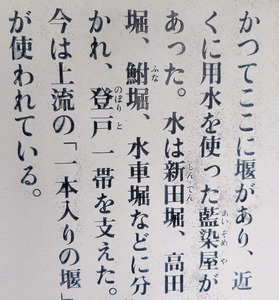 かつてここに堰があり、近
くに用水を使った藍染屋が
あった。水は新田堀、高田
堀、鮒堀、水車堀などに分
かれ、登戸一帯を支えた。
今は上流の「一本入りの堰」
が使われている。